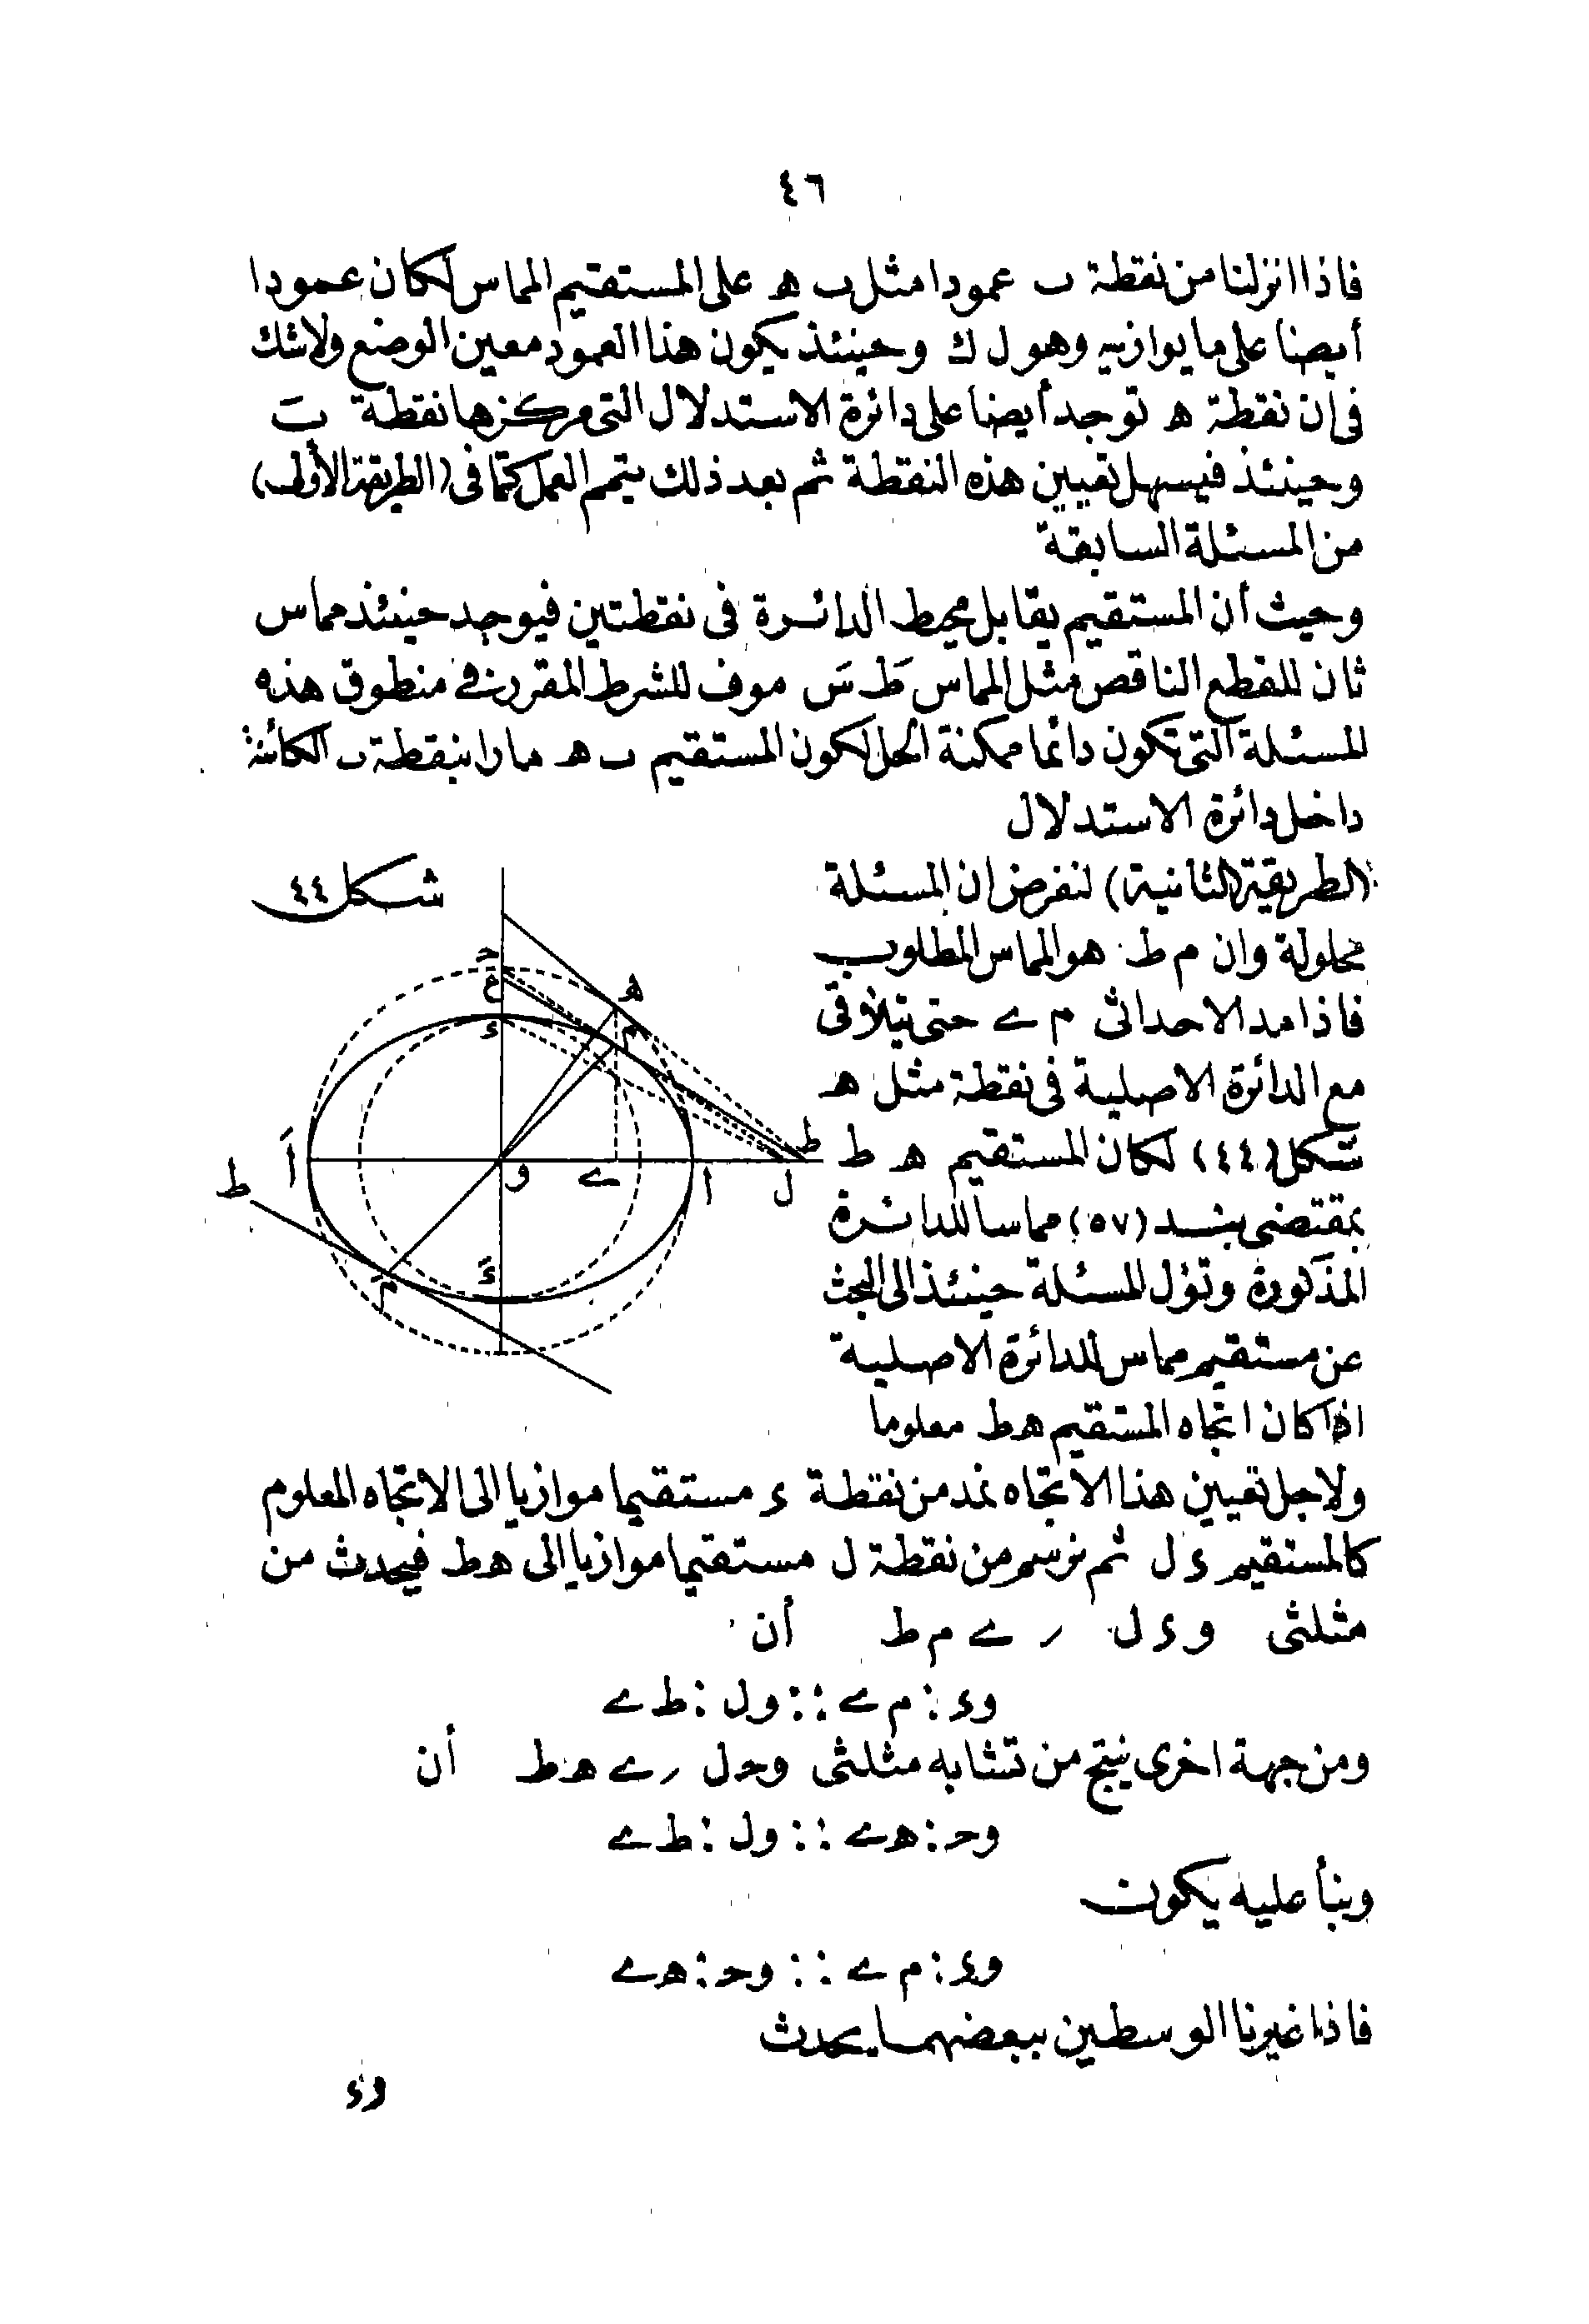 ٤٦
فاذا انزلنا من نقطة ب عمودا مثل ب ه على المستقيم المماس لكان عمودا
أيضا على ما يوازيه وهو ل ك وحينئذ يكون هذا العمود معين الوضع ولا شك
فى ان نقطة ه توجد أيضا على دائرة الاستدلال التى مركزها نقطة بَ
وحينئذ فيسهل تعيين هذه النقطة ثم بعد ذلك يتمم العمل كما فى (الطريقة الأولى)
من المسئلة السابقة
وحيث أن المستقيم يقابل محيط الدائرة فى نقطتين فيوجد حينئذ مماس
ثان للقطع الناقص مثل المماس طَ سَ موف للشرط المقرر فى منطوق هذه
المسئلة التى تكون دائما ممكنة الحل لكون المستقيم ب ه مارا بنقطة ب الكائنة
داخل دائرة الاستدلال
(الطريقة الثانية) لنفرض ان المسئلة
محلولة وان م ط هو المماس المطلوب
فاذا مد الاحداثى م ے حتى يتلاقى
مع الدائرة الاصلية فى نقطة مثل ه
شكل (٤٤) لكان المستقيم ه ط
بمقتضى بند (٥٧) مماسا للدائرة
المذكورة وتؤل المسئلة حينئذ الى البحث
عن مستقيم مماس للدائرة الاصلية
اذا كان اتجاه المستقيم ه ط معلوما
شكل ٤٤
حـ
ع
ء
ه
م
ط
ل
ا
ے
و
أَ
ط
مَ
ءَ
ولاجل تعيين هذا الاتجاه نمد من نقطة ء مستقيما موازيا الى الاتجاه المعلوم
كالمستقيم ء ل ثم نرسم من نقطة ل مستقيما موازيا الى ه ط فيحدث من
مثلثى و ء ل ر ے م ط أن
وء : م ے :: ول : ط ے
ومن جهة اخرى ينتج من تشابه مثلثى وحـ ل ر ے ه ط أن
وحـ : ه ے :: ول : ط ے
وبنأ عليه يكون
وء : م ے :: وحـ : ه ے
فاذا غيرنا الوسطين ببعضهما يحدث
وء